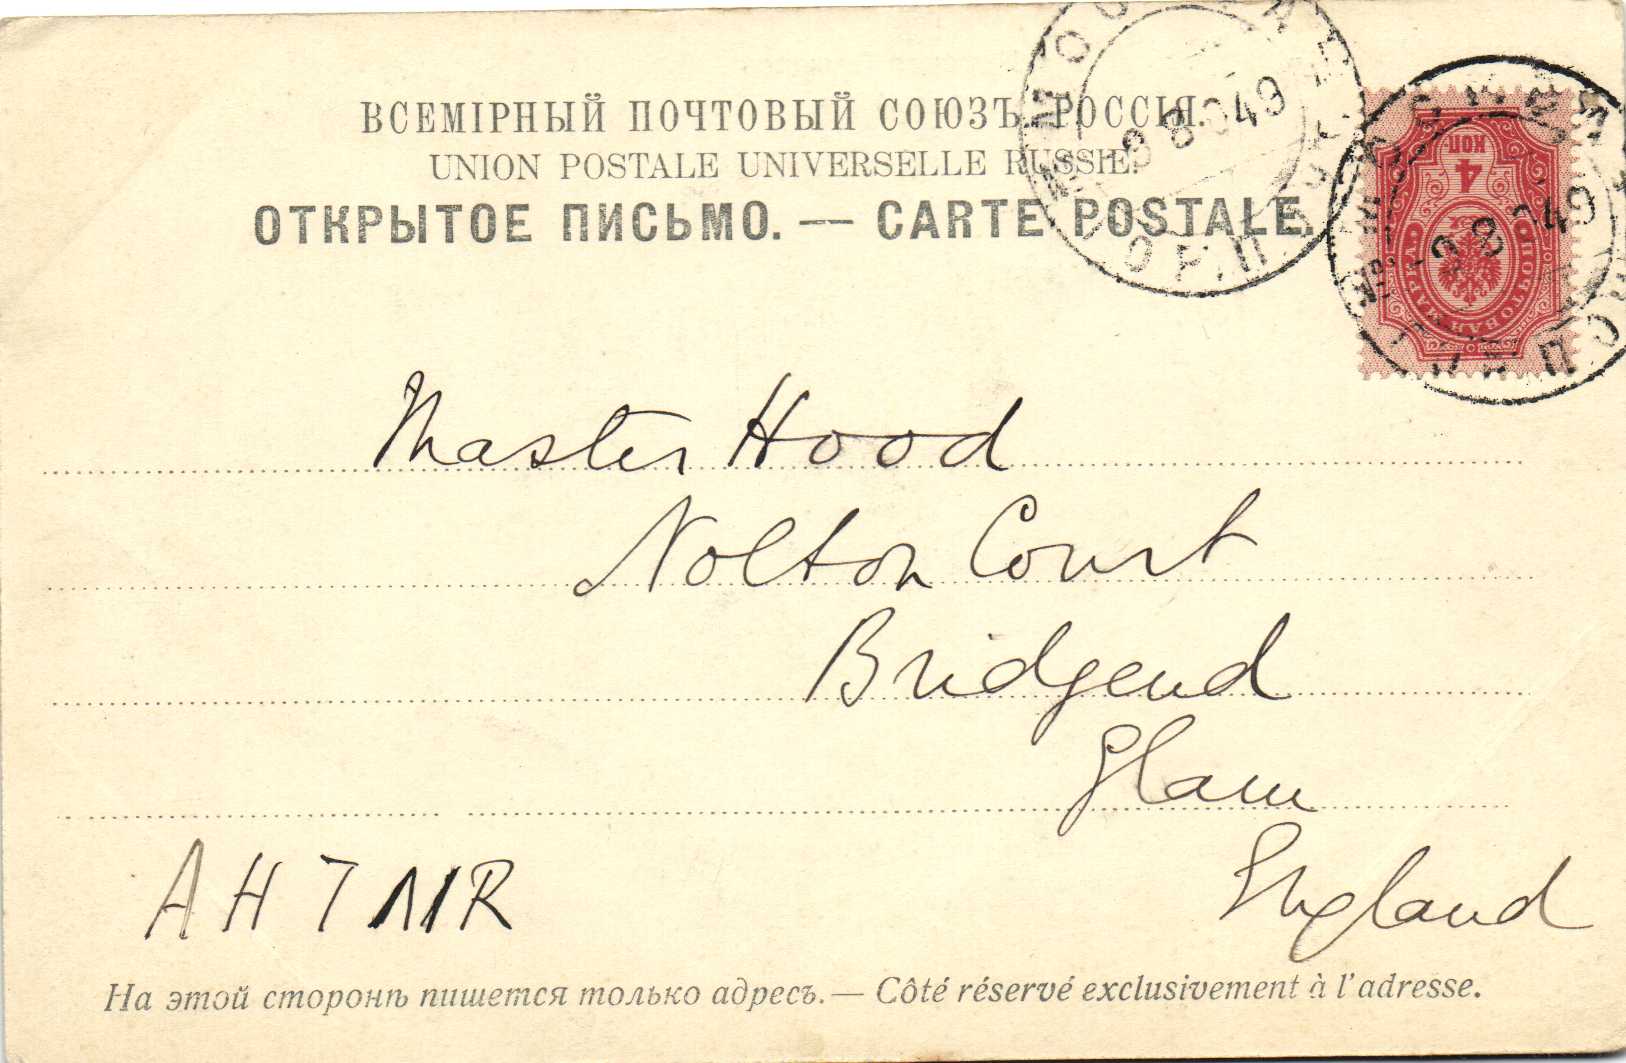 ВСЕМІРНЫЙ ПОЧТОВЫЙ СОЮЗЪ. РОССІЯ.
UNION POSTALE UNIVERSELLE RUSSIE.
ОТКРЫТОЕ ПИСЬМО. — CARTE POSTALE.
4 КОП
ПОЧТОВАЯ МАРКА
Master Hood
Nolton Court
Bridgend
Glam
England
На этой сторонѣ пишется только адресъ. — Côté réservé exclusivement à l'adresse.